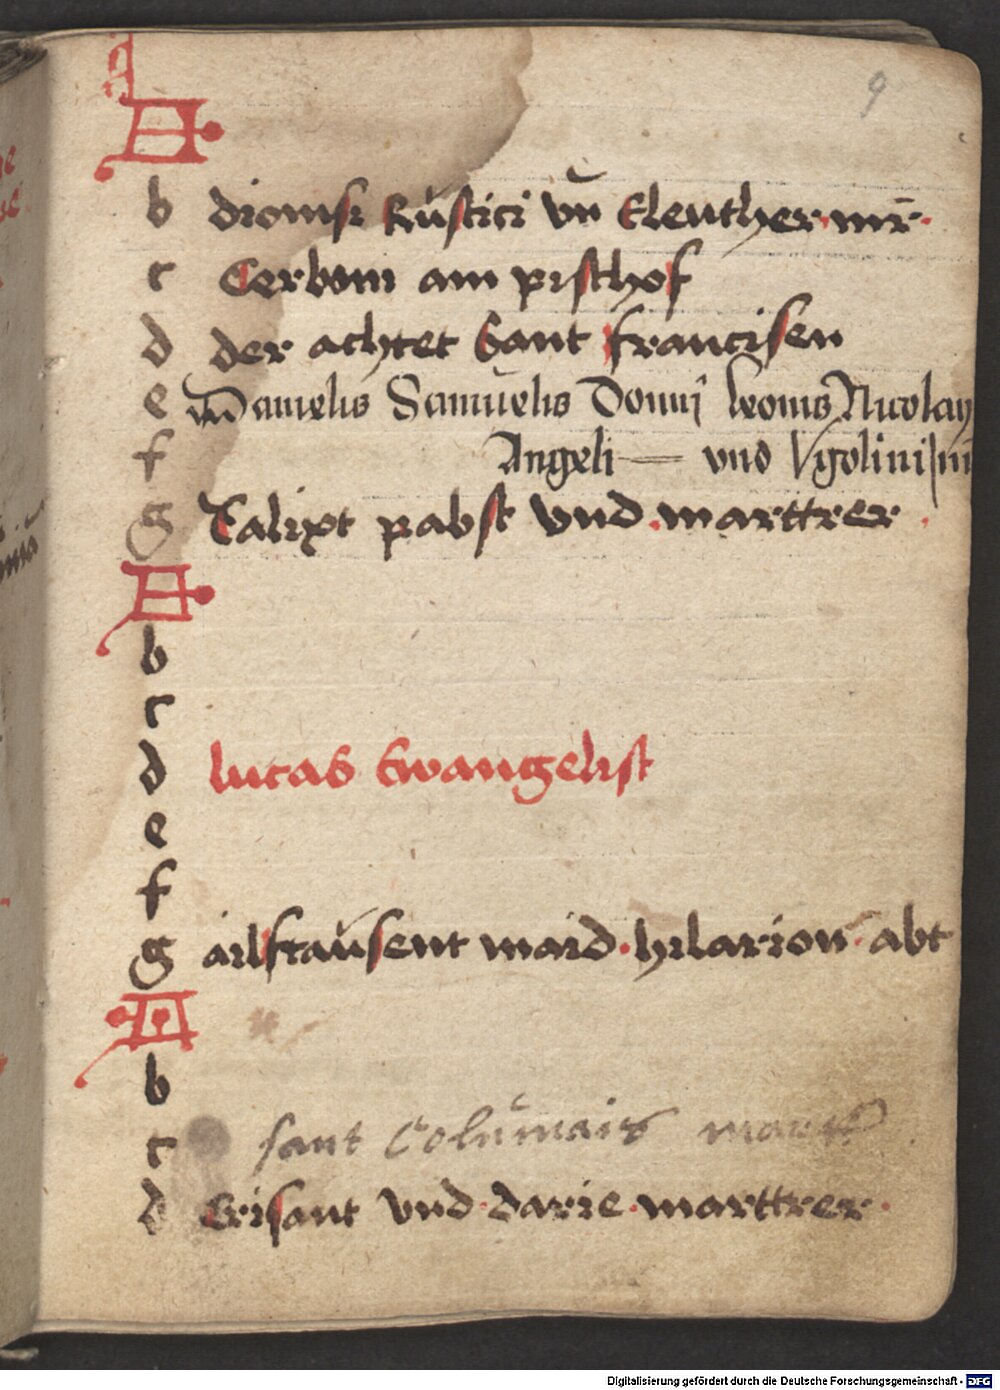 9
A
b dionisi Rustici vn̄ Eleuther mr̄.
c Cerboni am pischof
d der achtet Sant francisen
e Danielis Samuelis Donnj leonis Nicolay
f Angeli — vnd Vgolini m̄
g Calixt pabst vnd marttrer .
A
b
c
d lucas Ewangelist
e
f
g ailftausent maid · hilarion · abt
A
b
c sant Columais
d Crisant vnd darie marttrer .
Digitalisierung gefördert durch die Deutsche Forschungsgemeinschaft - DFG